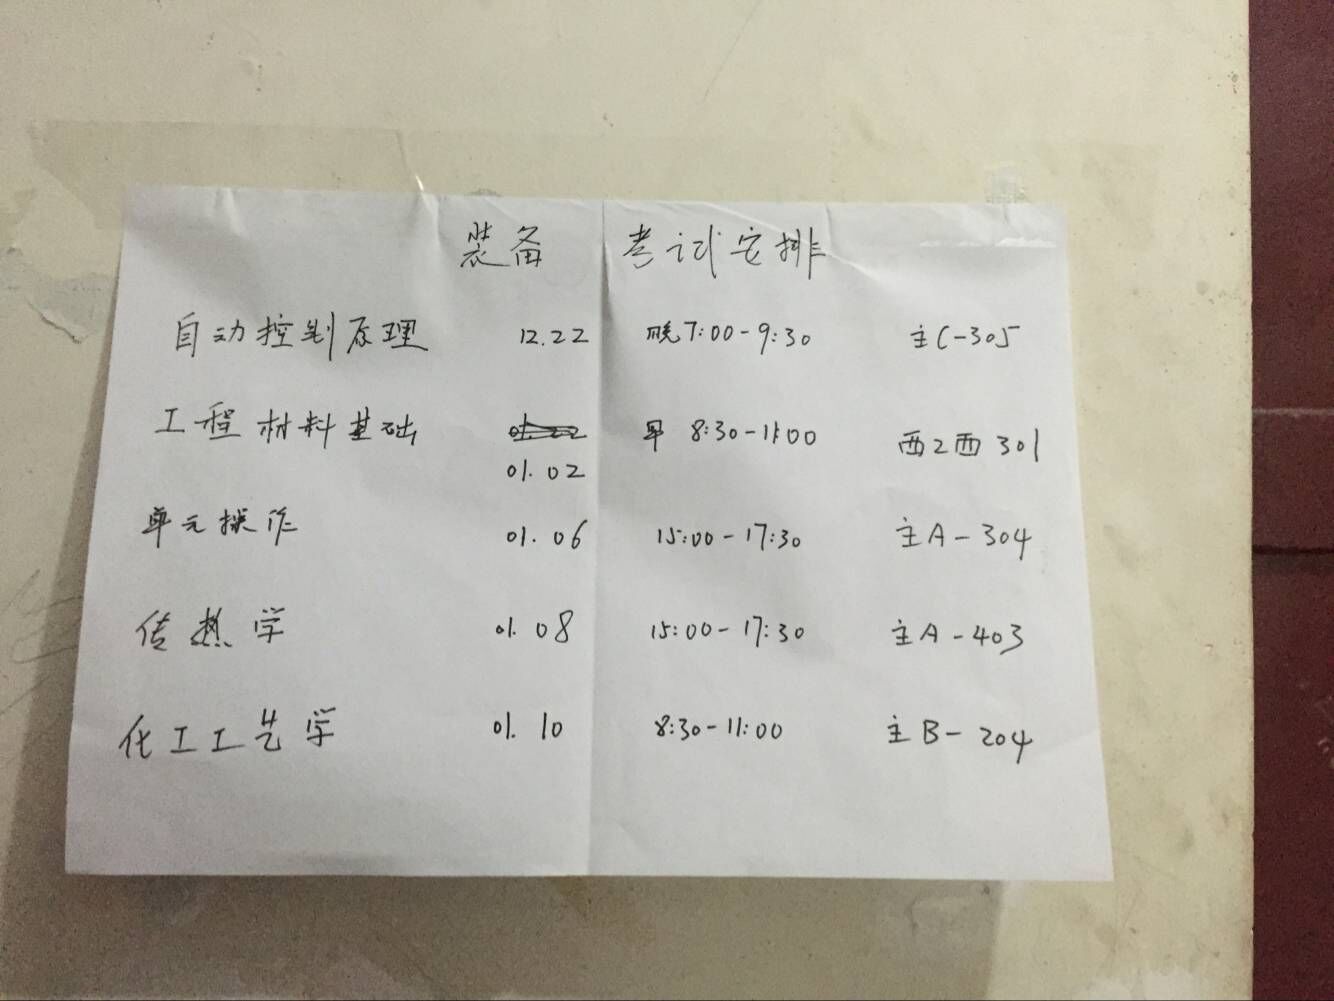 装备 考试安排
自动控制原理 12.22 晚7:00-9:30 主C-305
工程材料基础 早 8:30-11:00 西2西301
01.02
单元操作 01.06 15:00-17:30 主A-304
传热学 01.08 15:00-17:30 主A-403
化工工艺学 01.10 8:30-11:00 主B-204